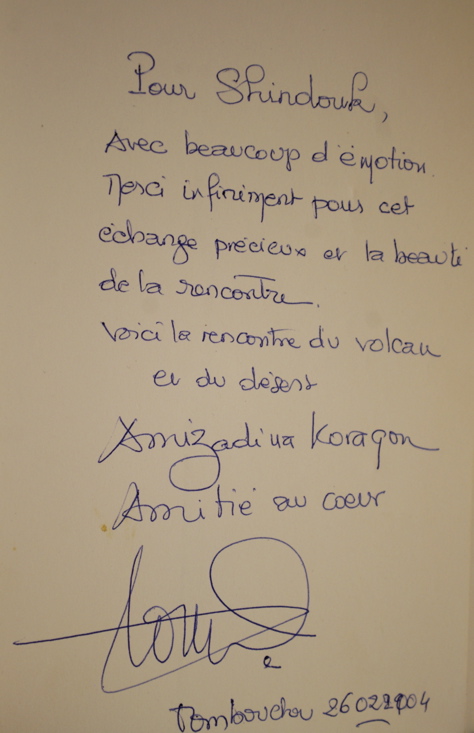 Pour Shindouk,
Avec beaucoup d'émotion.
Merci infiniment pour cet
échange précieux et la beauté
de la rencontre.
Voici la rencontre du volcan
et du désert
Amizadiua Koragon
Amitié au coeur
Tombouctou 26